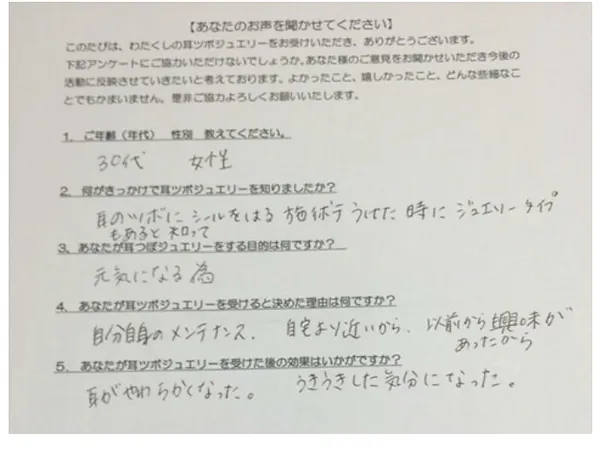 【あなたのお声を聞かせてください】
このたびは、わたくしの耳ツボジュエリーをお受けいただき、ありがとうございます。
下記アンケートにご協力いただけないでしょうか。あなた様のご意見をお聞かせいただき今後の
活動に反映させていきたいと考えております。よかったこと、嬉しかったこと、どんな些細なこ
とでもかまいません。是非ご協力よろしくお願いいたします。
1．ご年齢（年代）　性別　教えてください。
30代　女性
2．何がきっかけで耳ツボジュエリーを知りましたか？
耳のツボに シールをはる 施術を うけた 時に ジュエリータイプ
もあると 知って
3、あなたが耳つぼジュエリーをする目的は何ですか？
元気になる為
4．あなたが耳ツボジュエリーを受けると決めた理由は何ですか？
自分自身のメンテナンス．自宅より近いから．以前から興味が
あったから
5．あなたが耳ツボジュエリーを受けた後の効果はいかがですか？
耳がやわらかくなった。　うきうきした気分になった。